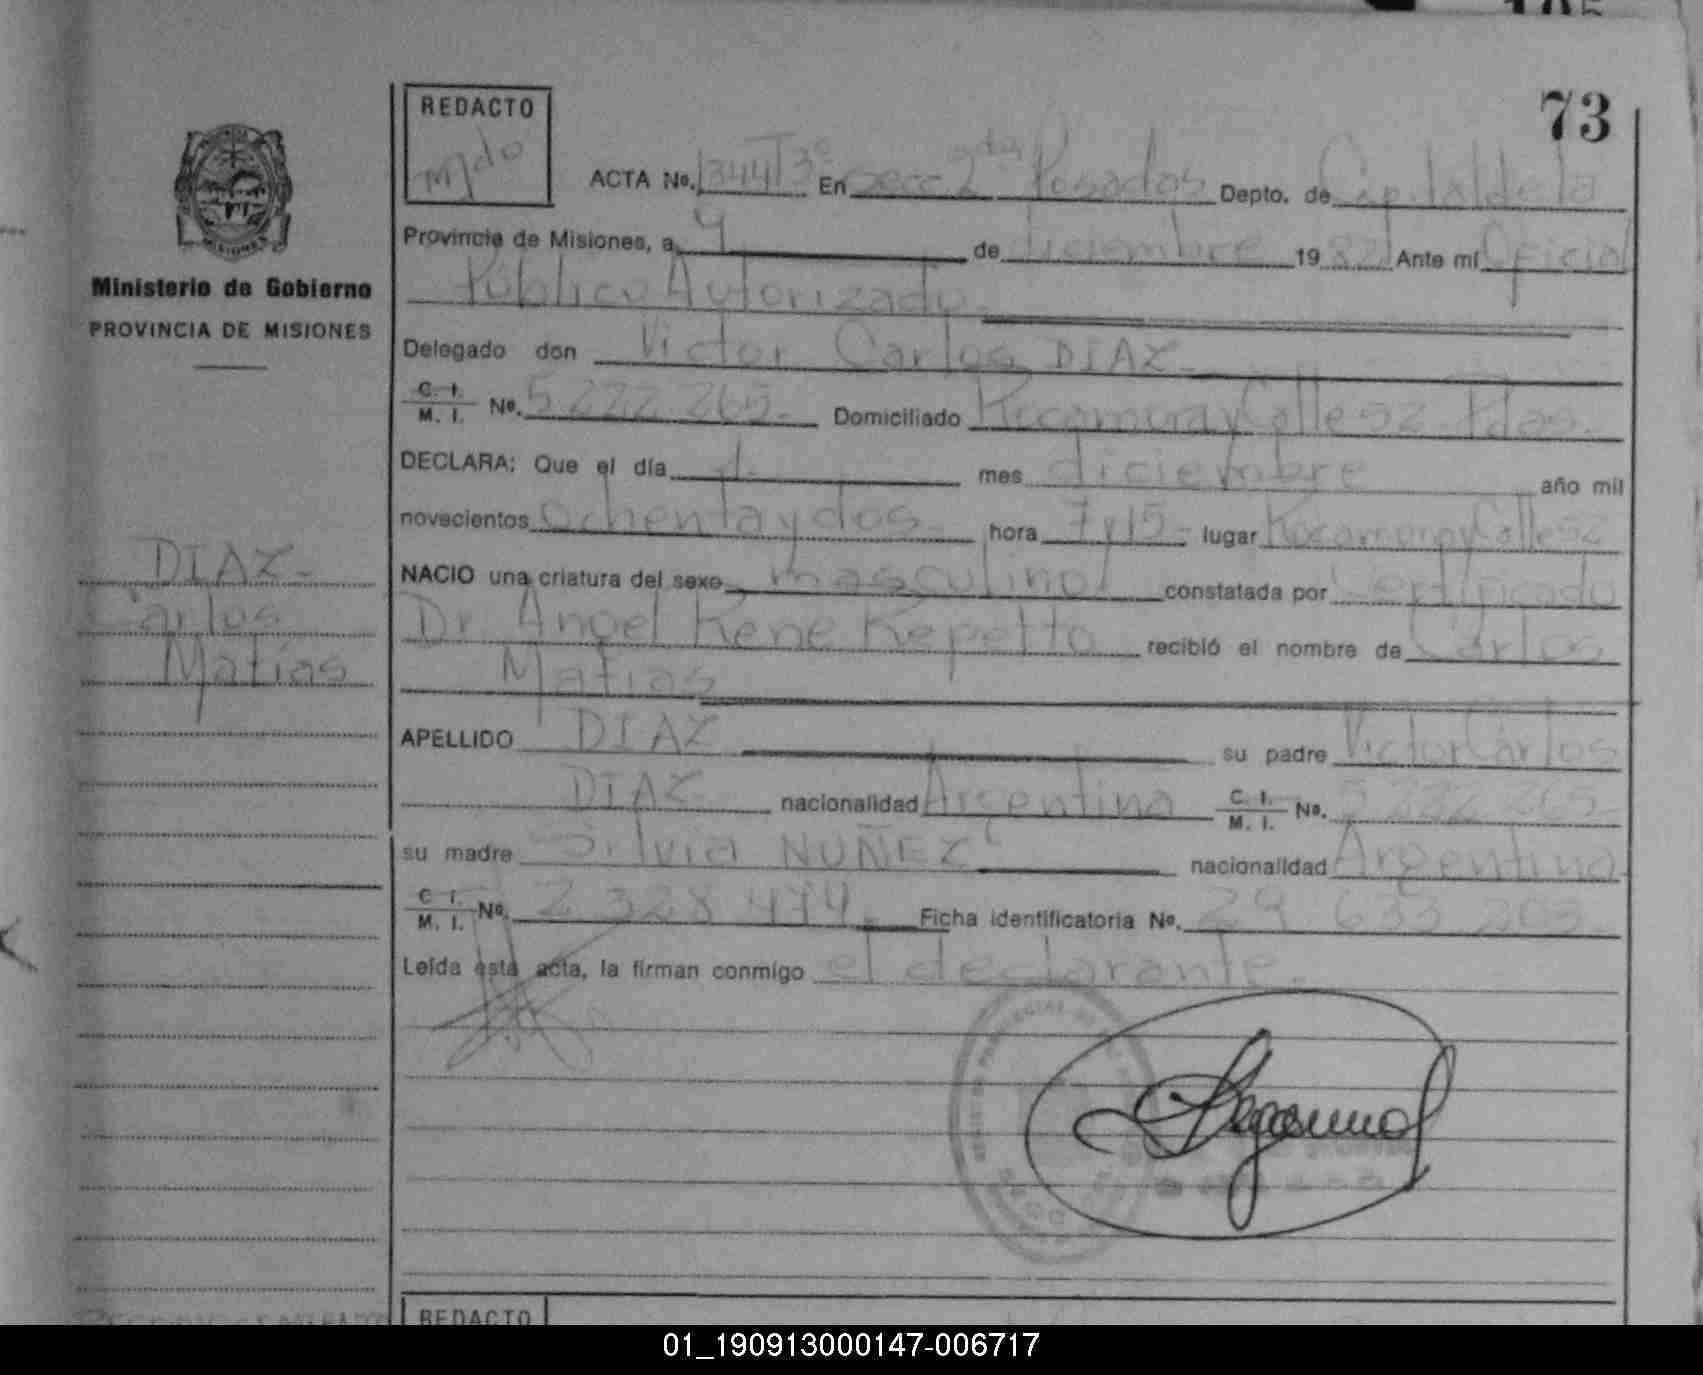 73
REDACTO
Mdo
ACTA No. 1344 T3º En Secc 2da Posadas Depto. de Capital de la
Provincia de Misiones, a 9 de diciembre 1982 Ante mí Oficial
Público Autorizado.
Delegado don Victor Carlos DIAZ
C. I. / M. I. No. 5.222.265.- Domiciliado Rocamora y Calle 52 Pdas.
DECLARA: Que el día 1 mes diciembre año mil
novecientos ochenta y dos hora 7 y 15 - lugar Rocamora y Calle 52
NACIO una criatura del sexo masculino constatada por Certificado
Dr Angel Rene Repetto recibió el nombre de Carlos
Matias
APELLIDO DIAZ su padre Victor Carlos
DIAZ nacionalidad Argentina C. I. / M. I. No. 5.222.265-
su madre Silvia NUÑEZ nacionalidad Argentina
C. I. / M. I. No. Ficha identificatoria No. 29 633 203
Leída esta acta, la firman conmigo el declarante.
Ministerio de Gobierno
PROVINCIA DE MISIONES
DIAZ-
Carlos
Matías
REDACTO
01_190913000147-006717